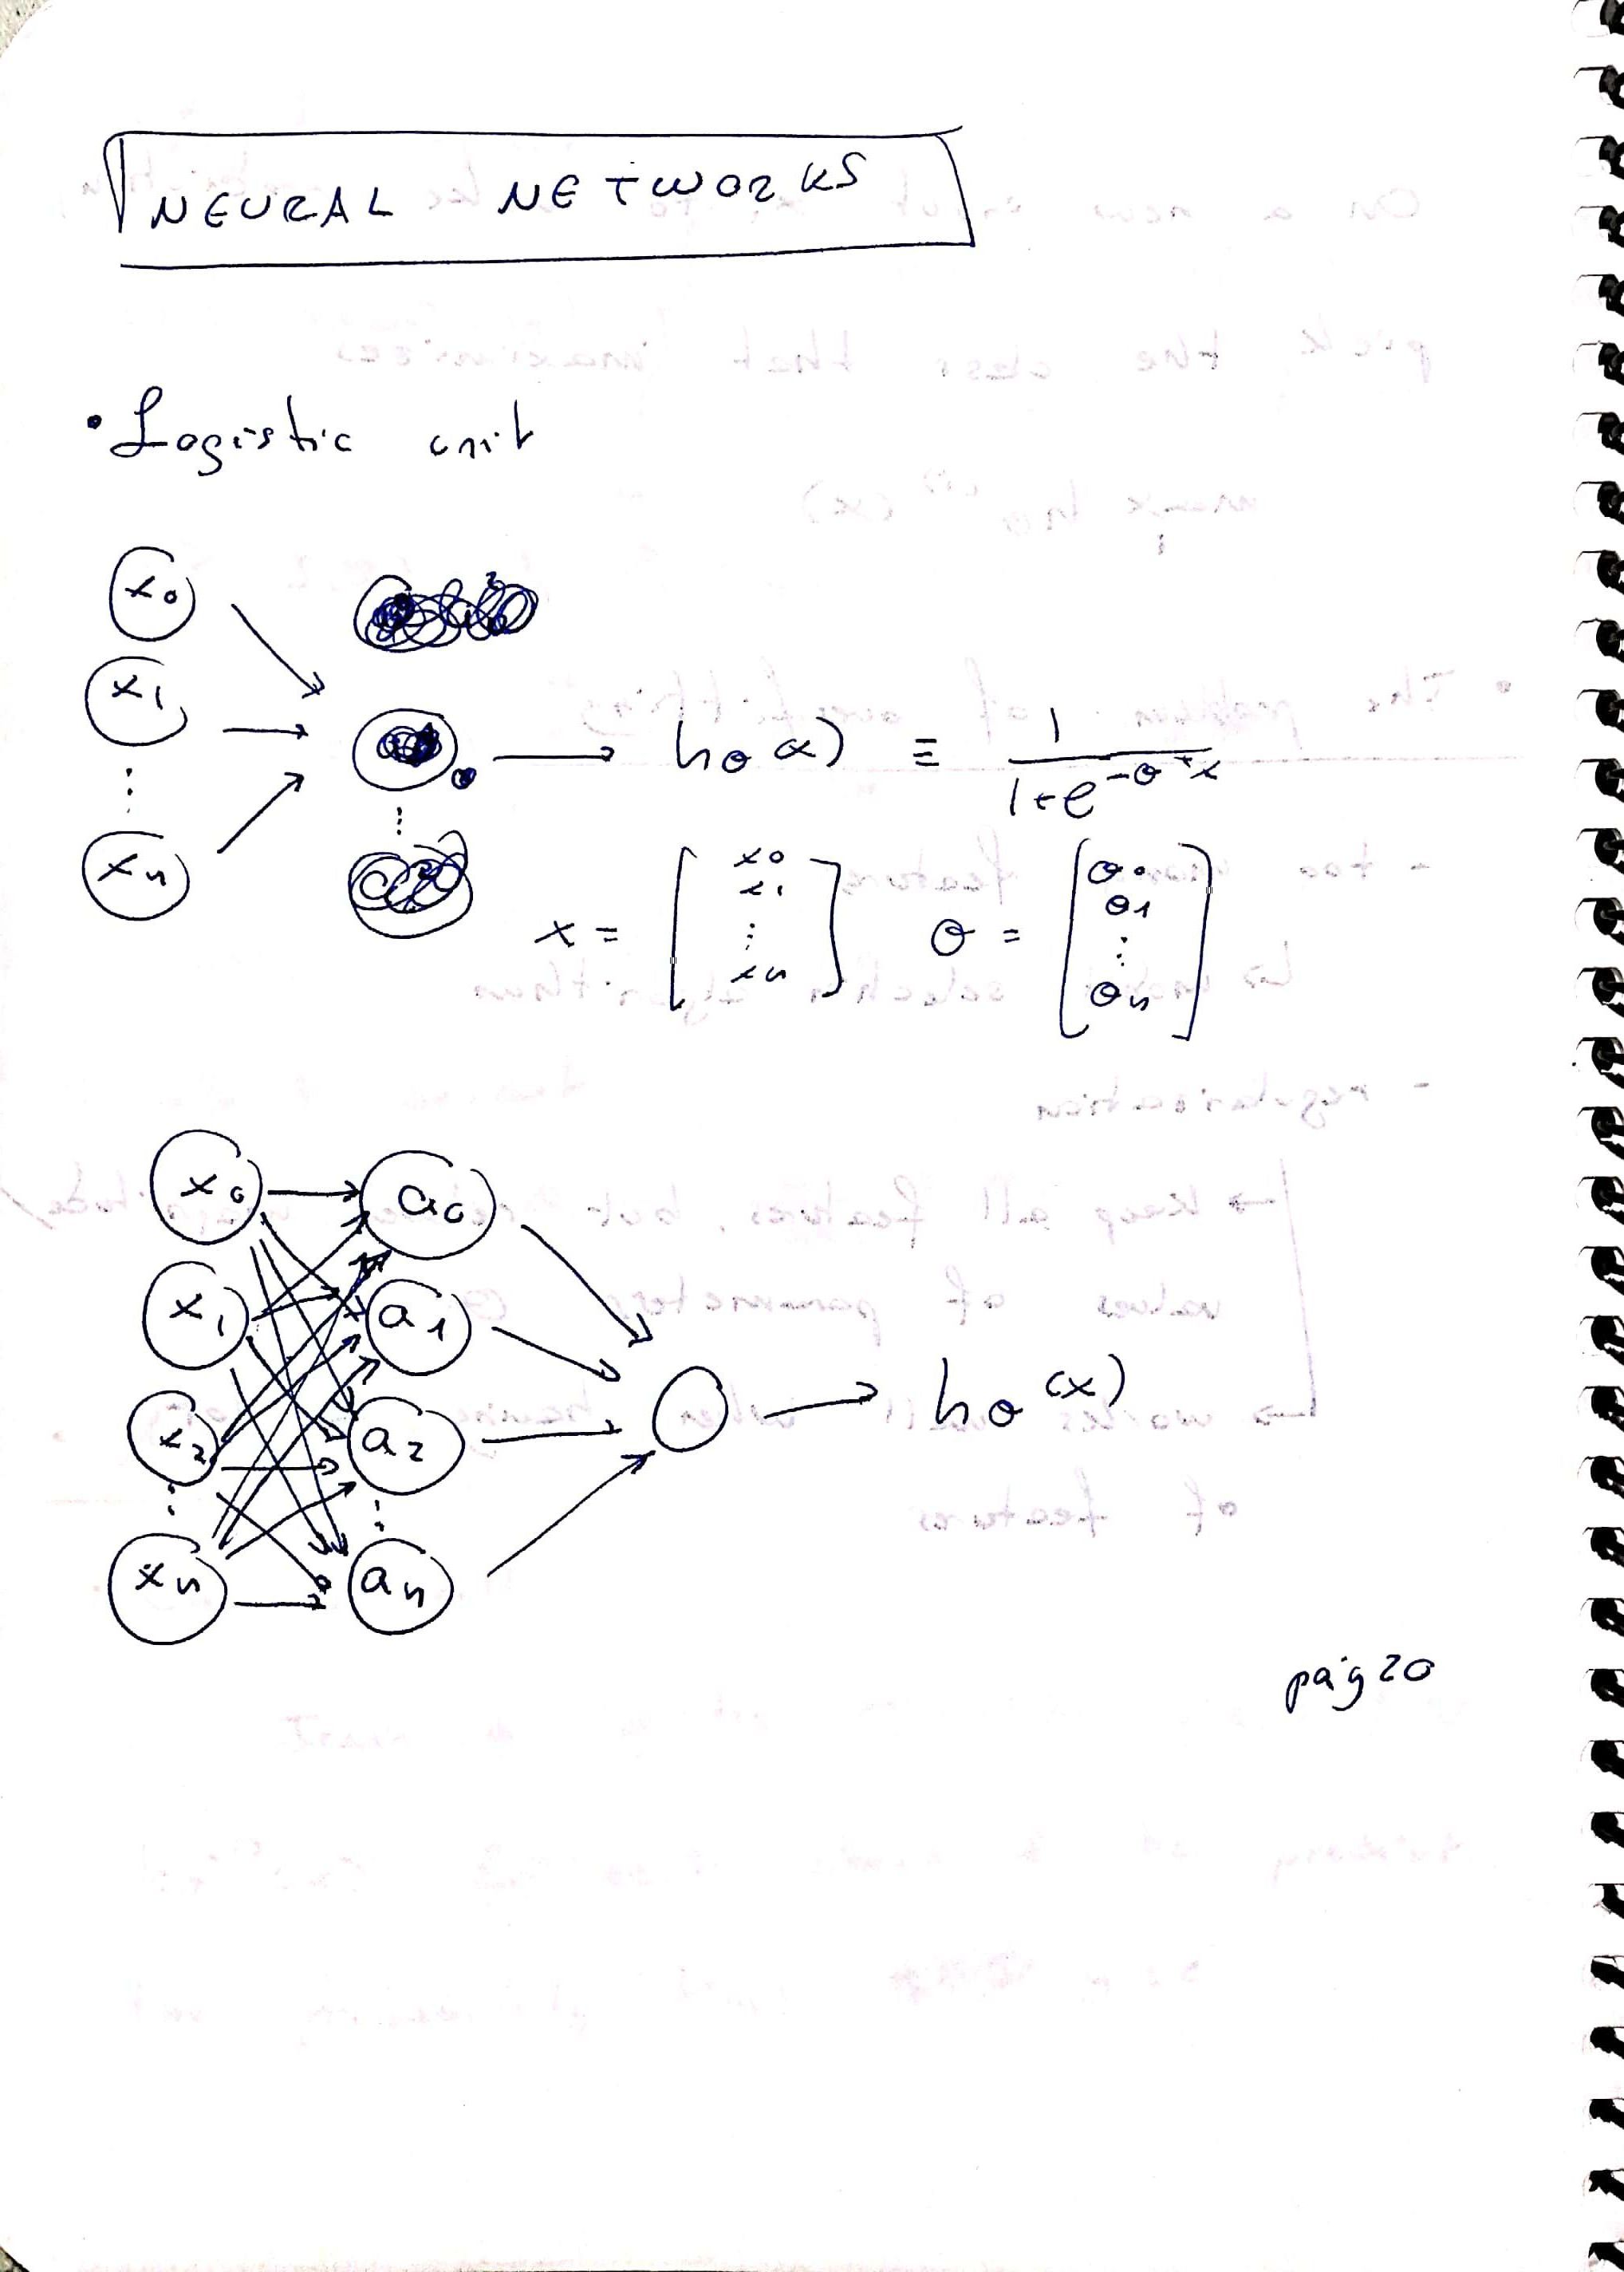 NEURAL NETWORKS
• Logistic unit
x₀
x₁
⋮
xₙ
hθ(x) ≡ 1 / (1+e^(-θᵀx))
x = [x₀ x₁ ⋮ xₙ] θ = [θ₀ θ₁ ⋮ θₙ]
x₀ a₀
x₁ a₁
x₂ a₂
⋮ ⋮
xₙ aₙ
hθ(x)
pág 20